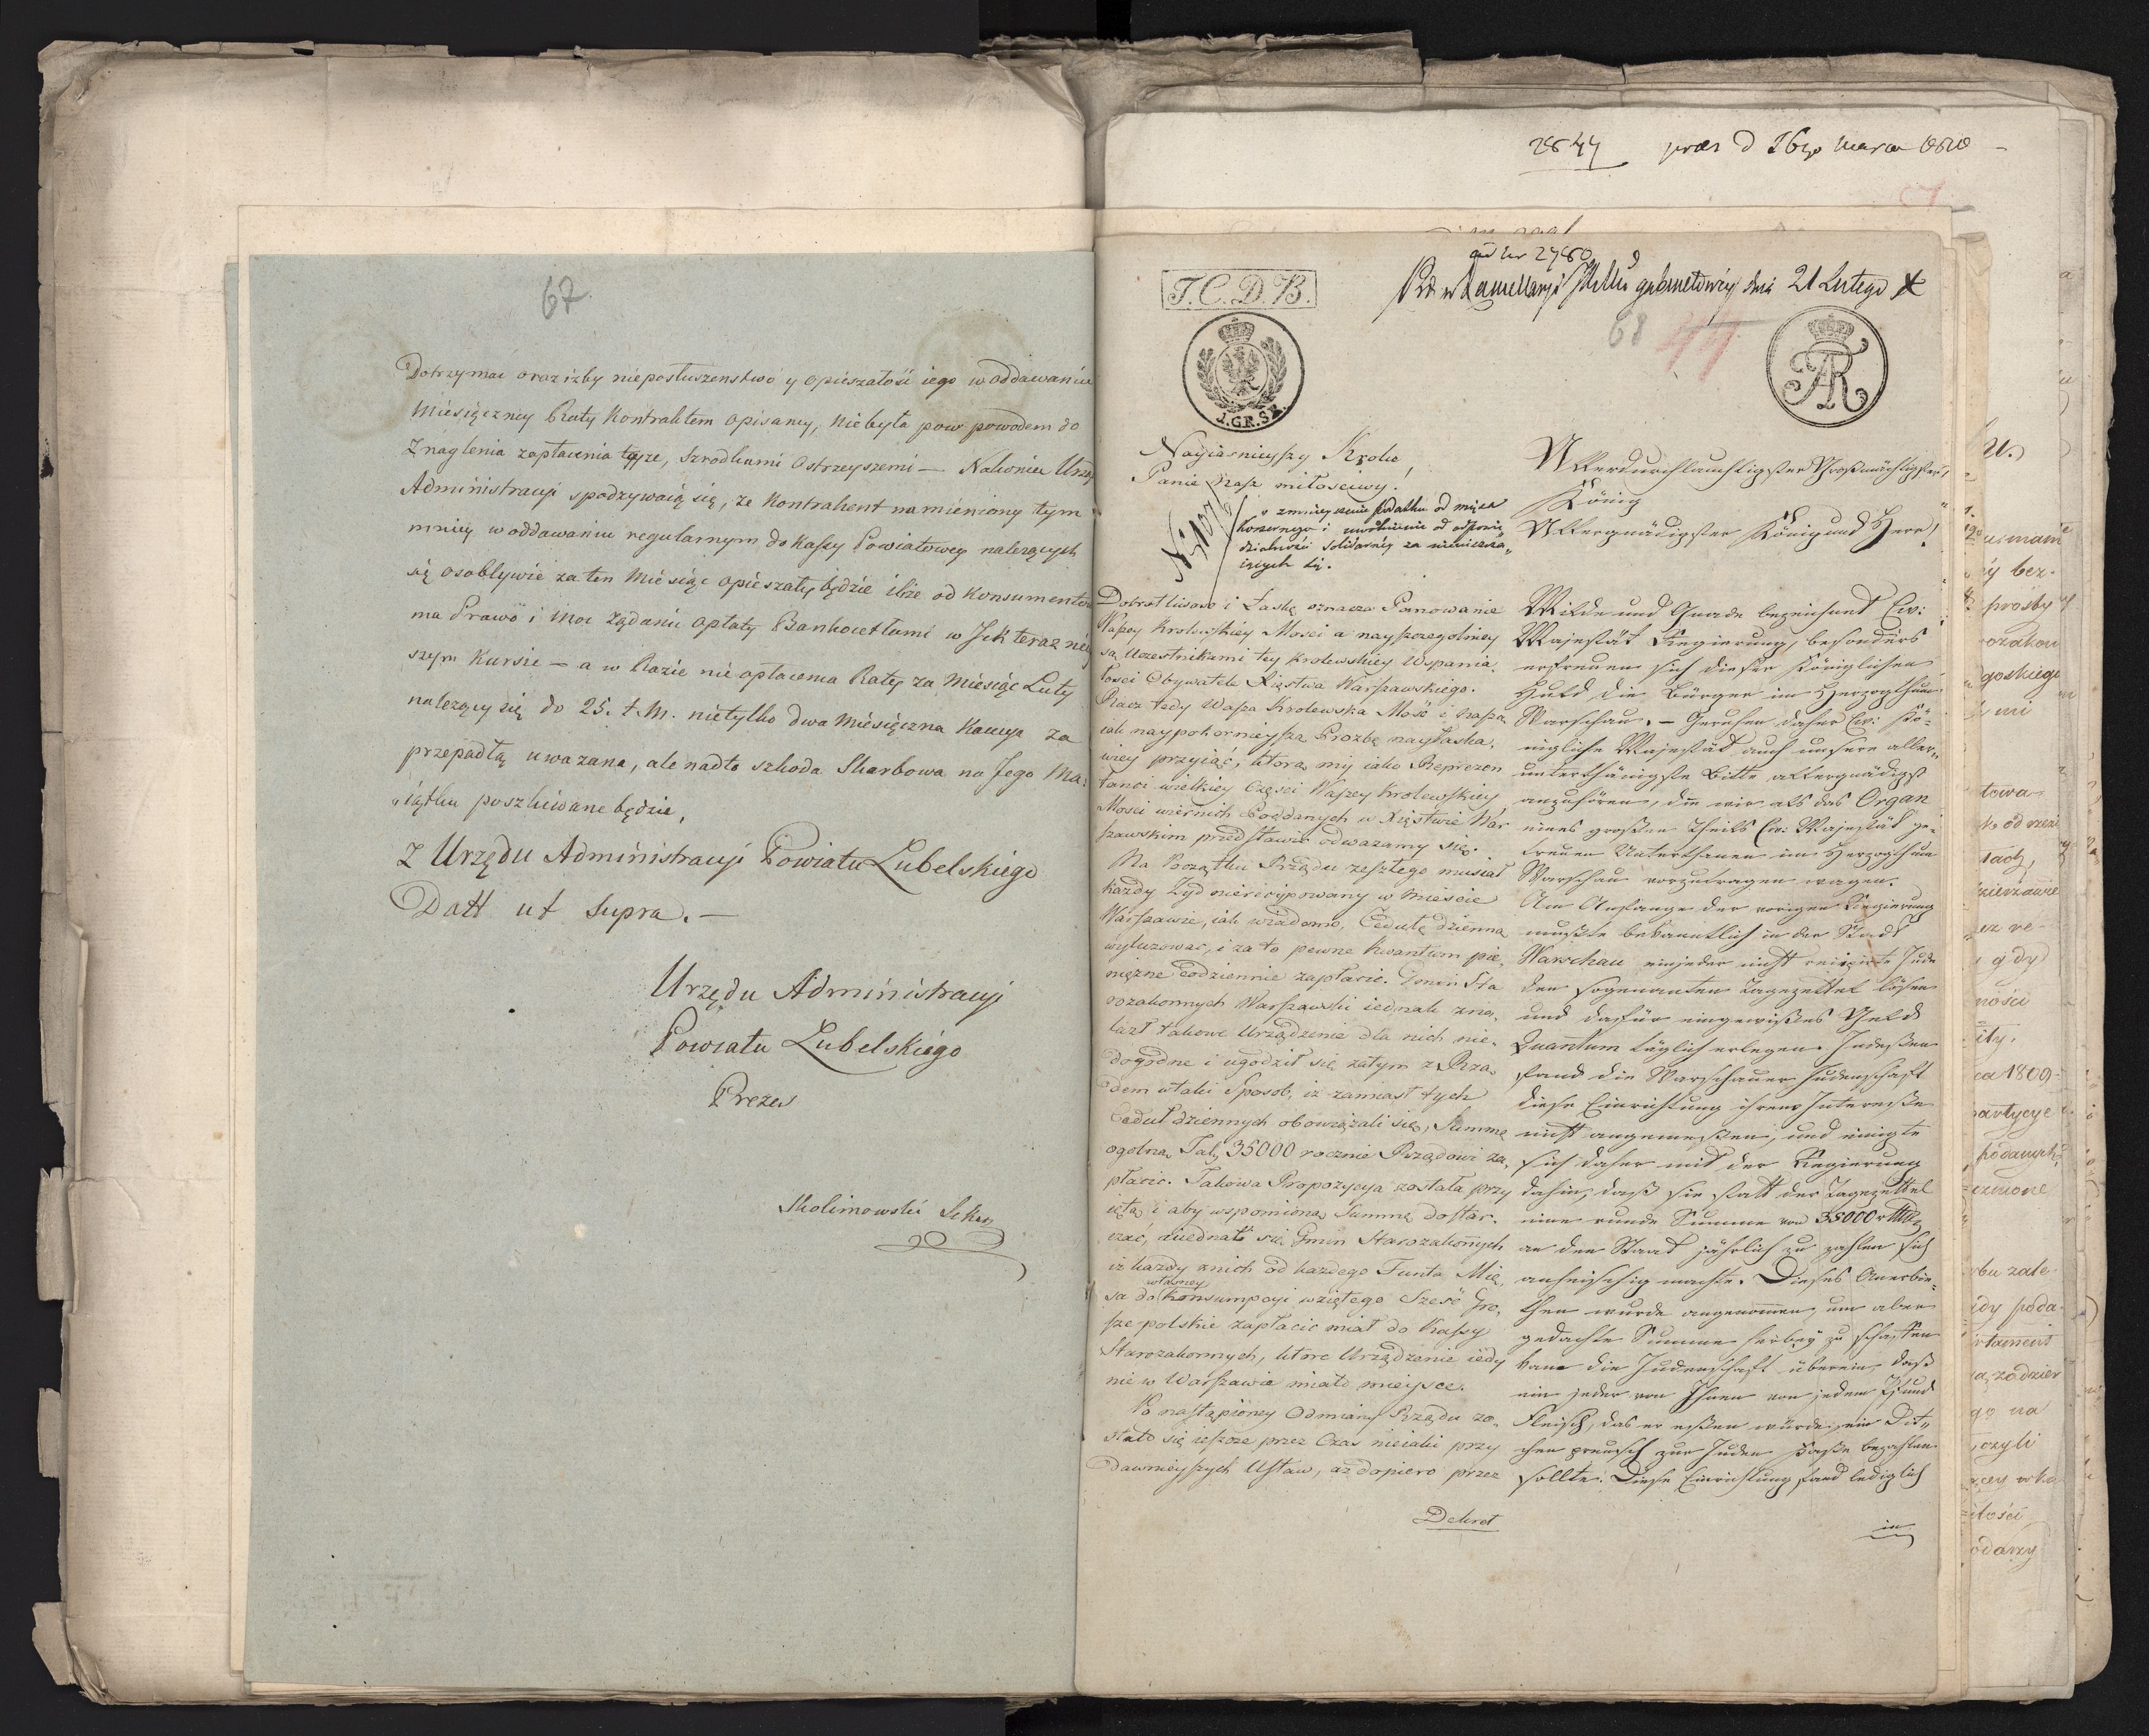 67
Dotrzymać oraz iżby nieposłuszenstwo y opieszałość iego w oddawaniu
Miesięczney Raty Kontraktem opisaney, nie była pow powodem do
Znaglenia zapłacenia teyże, szrodkami Ostrzeyszemi — Nakoniec Urząd
Administracyi spodzywaią się, że Kontrahent namieniony tym
mniey w oddawaniu regularnym do Kassy Powiatowey należących
się osoblywie za ten Miesiąc opieszały będzie ile że od Konsumentow
ma Prawo i Moc Żądania opłaty Bankocetlami w Jch teraznie
szym Kursie — a w Razie nie opłacenia Raty za Miesiąc Luty
należący się do 25. t. M. nietylko dwa Miesięczna Kaucya za
przepadłą uważana, ale nadto szkoda Skarbowa na Jego Ma-
iątku poszukiwane będzie,
Z Urzędu Administracyi Powiatu Lubelskiego
Datt ut Supra. —
Urzędu Administracyi
Powiatu Lubelskiego
Prezes
Skolimowski Sekr
2844 praes d 16go Marca 1810 -
ad Nr 2780
w Kancellaryi gabinetowéy dnia 21 Lutego
J.C.D.B.
68
J.GR.SR.
FAR
Nayiasnieyszy Krolu,
Panie Nasz miłosciwy!
N 107
o zmnieyszenie podatku od mięsa
koszernego i uwolnienie od odpowie
dzialności solidarnéy za nieuiszcza„
iących się.
Dobrotliwosc i Łaskę oznacza Panowanie
Waszey Krolewskiey Mosci a nayszczegolniey
są Uczestnikami tey Krolewskiey Wspania
łosci Obywatele Xięstwa Warszawskiego.
Racz tedy Wasza Krolewska Mość i nasza
iak naypokornieyszą Prozbę nayłaska,
wiey przyiąć, ktorą my iako Reprezen
tanci wielkiey Częsci Waszey Krolewskiey
Mosci wiernich Poddanych w Xięstwie War
szawskim przedstawić odważamy się.
Na Początku Rządu zeszłego musiał
każdy Żyd niereciypowany w Mieście
Warszawie, iak wiadomo, Cedułę dzienną
wyluzować, i za to pewne Kwantum pie
niężne codziennie zapłacic. Gmin Sta
rozakonnych Warszawski iednak zna„
lazł takowe Urządzenie dla nich nie„
dogodne i ugodził się zatym z Rzą„
dem w taki Sposob, iż zamiast tych
Ceduł dziennych obowiązali się, Summę
ogolną Tal. 35000 rocznie Rządowi za„
płacic. Takowa Propozycya została przy
iętą i aby wspomnioną Summę dostar„
czać, ziednali się Gmin Starozakonnych
iż każdy z nich od każdego Funta Mię„
sa do własney Konsumpcyi wziętego Sześć Gro„
sze polskie zapłacic miał do Kassy
Starozakonnych, ktore Urządzenie iedy
nie w Warszawie miało mieysce.
Po nastąpioney Odmiany Rządu zo„
stało się ieszcze przez Czas nieiaki przy
Dawnieyszych Ustaw, aż dopiero przez
Dekret
Allerdurchlauchtigster Großmächtigster,
König
Allergnädigster König und Herr!
Milde und Gnade bezeichnet Ew:
Majestät Regierung, besonders
erfreuen sich dieser Königlichen
Huld die Bürger im Herzogthum
Warschau. — Geruhen daher Ew: Kö-
nigliche Majestät auch unsere aller„
unterthänigste Bitte allergnädigst
anzuhören, die wir als das Organ
eines großen Theils Ew: Majestät ge-
treuen Unterthanen im Herzogthum
Warschau vorzutragen wagen.
Am Anfange der vorigen Regierung
mußte bekanntlich in der Stadt
Warschau ein jeder nicht recipirte Jude
den sogenanten Tagezettel lösen
und dafür ein gewißes Geld
Quantum täglich erlegen. Indeßen
fand die Warschauer Judenschaft
diese Einrichtung ihrem Intereße
nicht angemeßen, und einigte
sich daher mit der Regierung
dahin, daß sie statt der Tagezettel
eine runde Summe von 35000
an den Staat jährlich zu zahlen sich
anheischig machte. Dieses Anerbie„
then wurde angenommen, um aber
gedachte Summe herbey zu schaffen
kam die Judenschaft überein, daß
ein jeder von Ihnen von jedem Pfund
Fleisch, das er eßen würde, ein Dit„
chen preusch zur Juden Kaße bezahlen
sollte. Diese Einrichtung fand lediglich
in